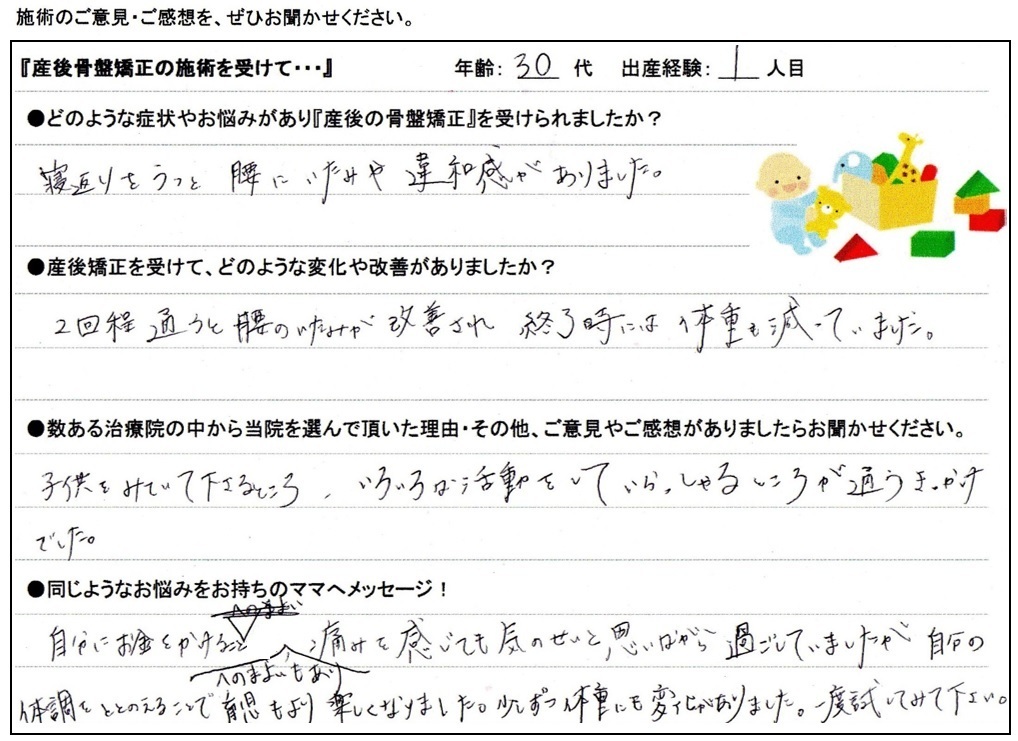 施術のご意見・ご感想を、ぜひお聞かせください。
『産後骨盤矯正の施術を受けて・・・』 年齢: 30 代 出産経験: 1 人目
●どのような症状やお悩みがあり『産後の骨盤矯正』を受けられましたか？
寝返りをうつと 腰に いたみや 違和感が ありました。
●産後矯正を受けて、どのような変化や改善がありましたか？
2回程 通うと 腰の いたみが 改善され 終了時には 体重も 減っていました。
●数ある治療院の中から当院を選んで頂いた理由・その他、ご意見やご感想がありましたらお聞かせください。
子供をみていて下さるところ、いろいろな活動をしていらっしゃるところが通うきっかけ
でした。
●同じようなお悩みをお持ちのママへメッセージ！
へのまよい
自分にお金をかけること 、痛みを感じても気のせいと思いながら 過ごしていましたが 自分の
へのまよいもあり
体調をととのえることで育児もより楽しくなりました。少しずつ体重にも変化がありました。一度試してみて下さい。